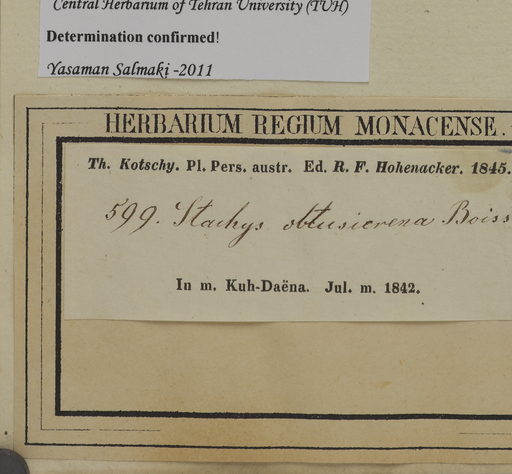 Central Herbarium of Tehran University (TUH)
Determination confirmed!
Yasaman Salmaki -2011
HERBARIUM REGIUM MONACENSE.
Th. Kotschy. Pl. Pers. austr. Ed. R. F. Hohenacker. 1845.
599. Stachys obtusicrena Boiss
In m. Kuh-Daëna. Jul. m. 1842.